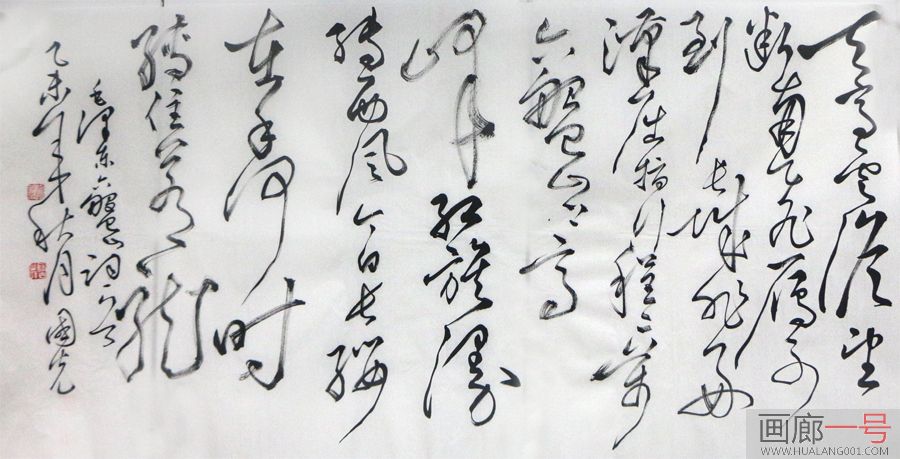 天高雲淡望
斷南飞雁不
到长城非好
漢屈指行程二萬
六盤山上高
峰红旗漫
捲西风今日长缨
在手何时
縛住苍龙
毛澤东六盤山詞
乙未年中秋月國光
画廊一号
WWW.HUALANG001.COM